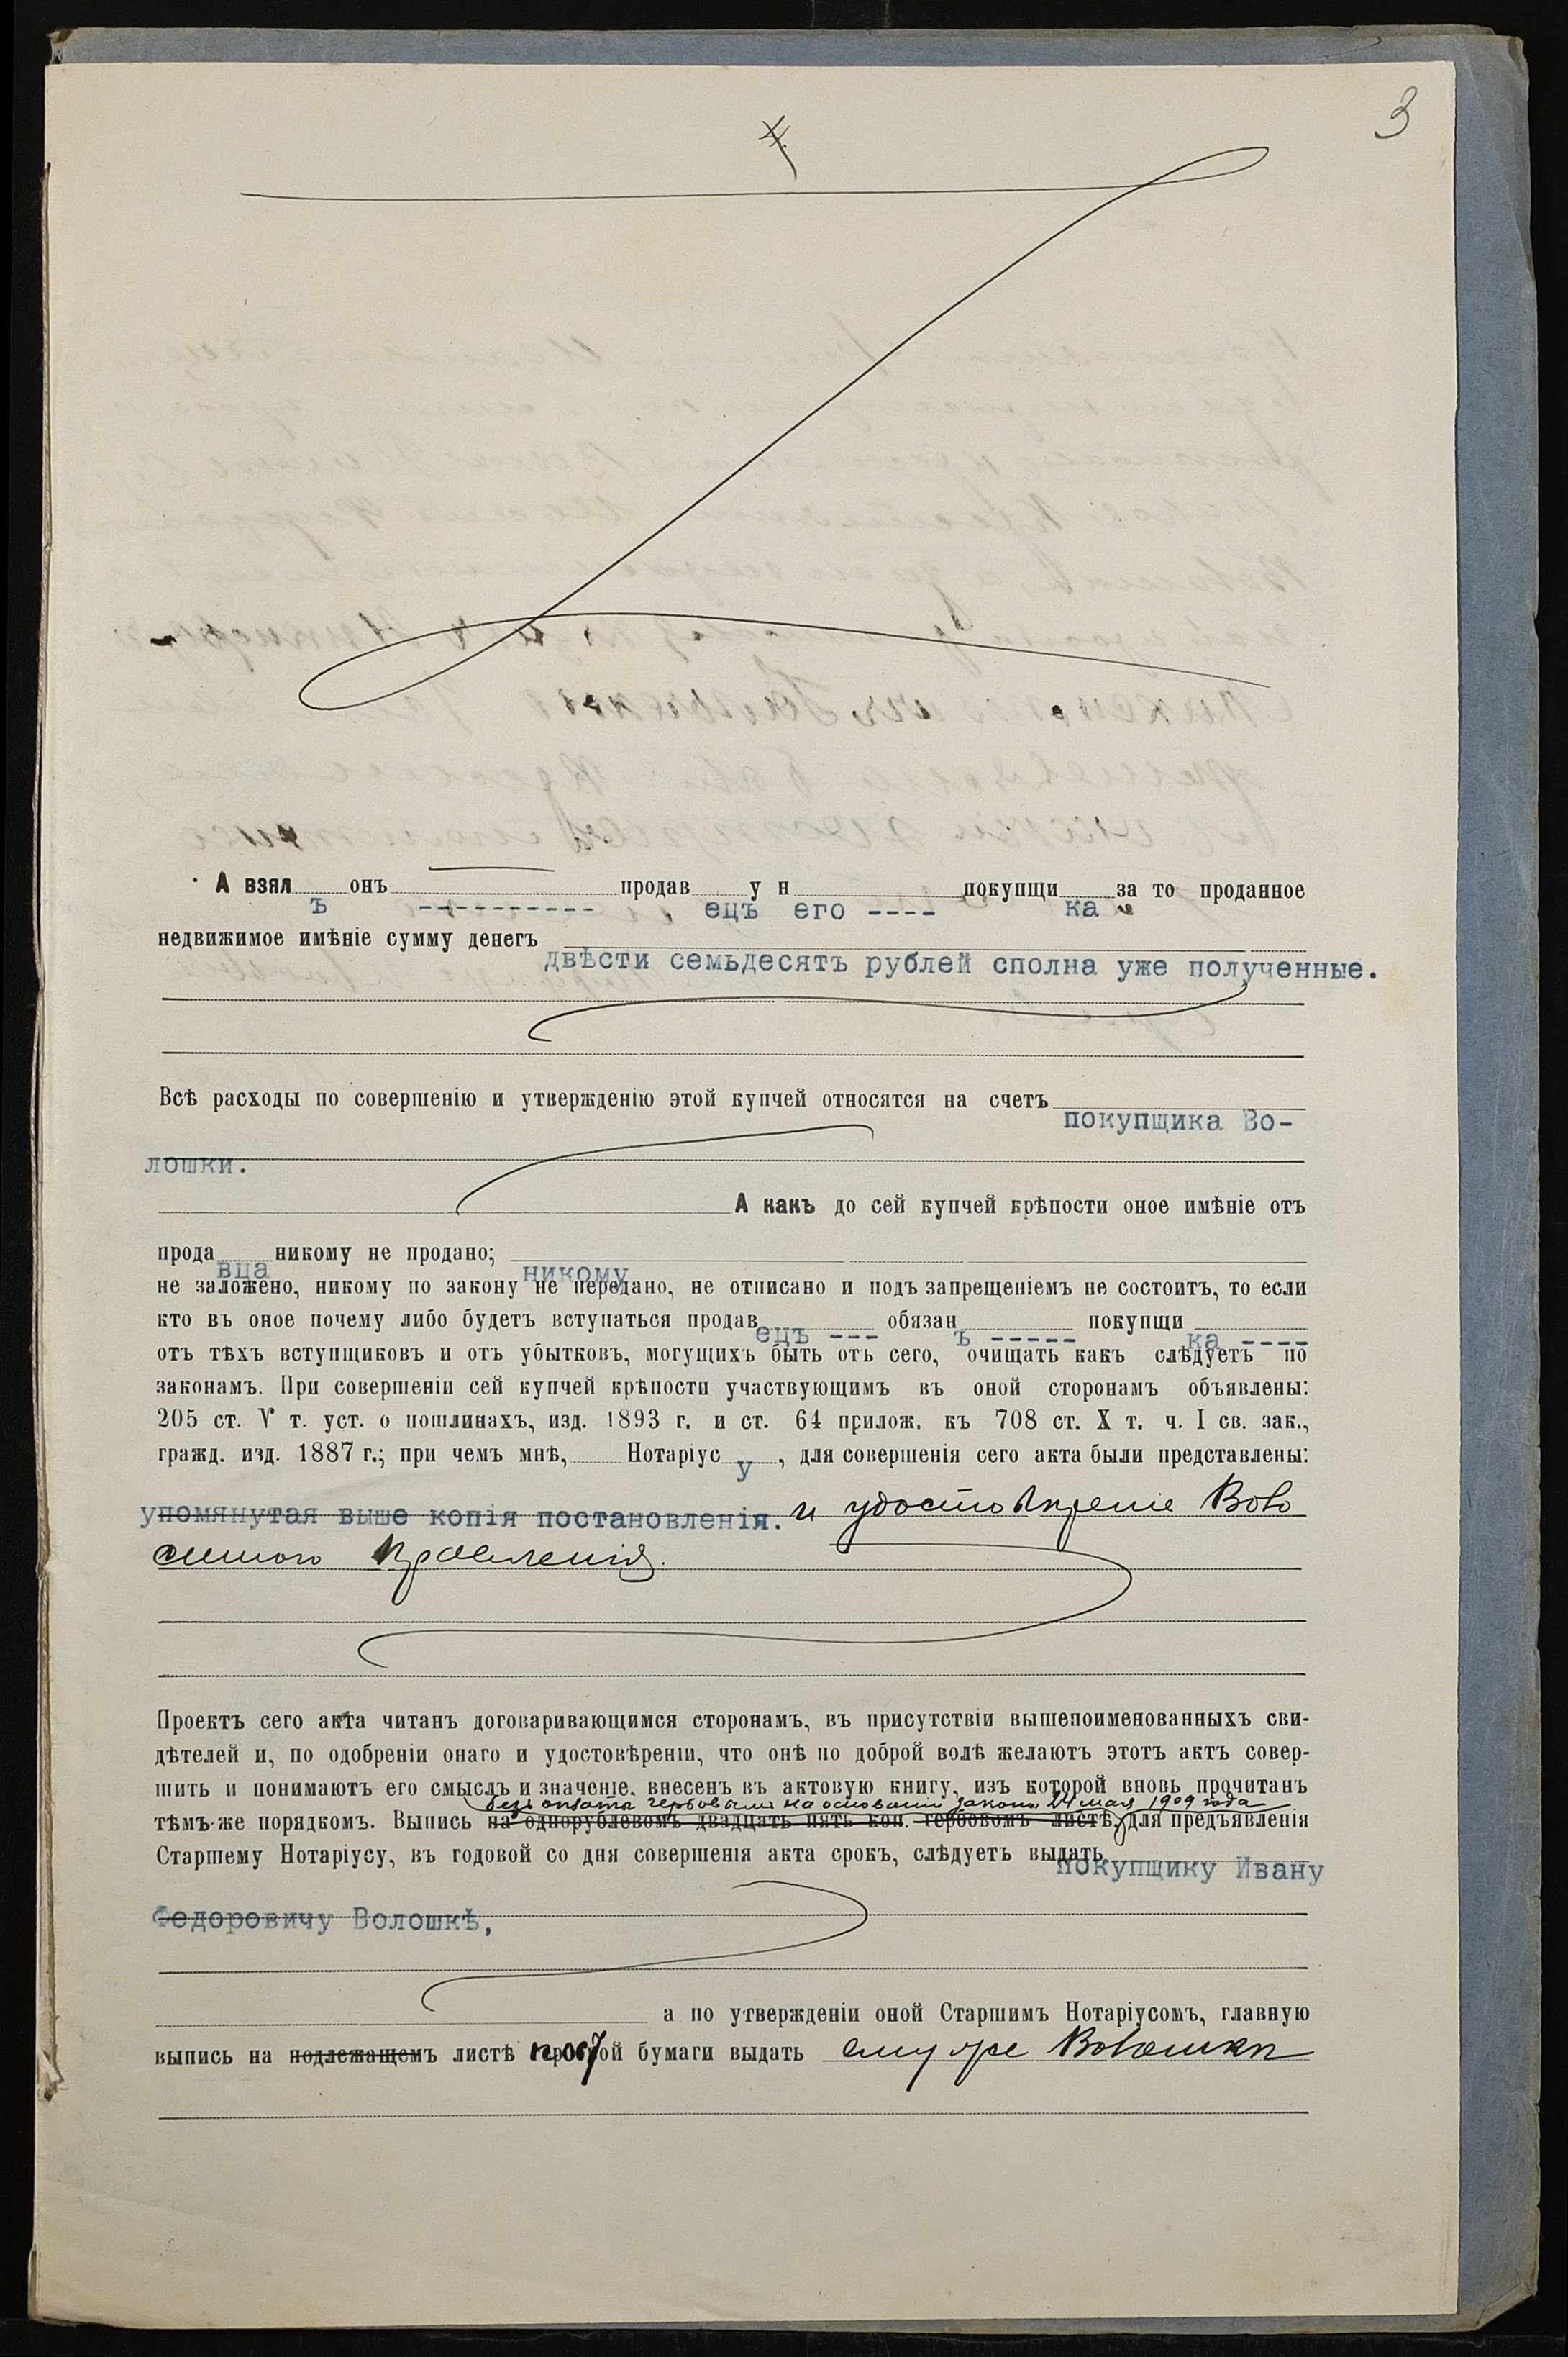 3
А взялъ онъ ---------- продавецъ у него ---- покупщика за то проданное
недвижимое имѣніе сумму денегъ двѣсти семьдесятъ рублей сполна уже полученные.
Всѣ расходы по совершенію и утвержденію этой купчей относятся на счетъ покупщика Во-
лошки.
А какъ до сей купчей крѣпости оное имѣніе отъ
продавца никому не продано; никому
не заложено, никому по закону не передано, не отписано и подъ запрещеніемъ не состоитъ, то если
кто въ оное почему либо будетъ вступаться продавецъ --- обязанъ ----- покупщика ----
отъ тѣхъ вступщиковъ и отъ убытковъ, могущихъ быть отъ сего, очищать какъ слѣдуетъ по
законамъ. При совершеніи сей купчей крѣпости участвующимъ въ оной сторонамъ объявлены:
205 ст. V т. уст. о пошлинахъ, изд. 1893 г. и ст. 64 прилож. къ 708 ст. X т. ч. I св. зак.,
гражд. изд. 1887 г.; при чемъ мнѣ, Нотаріусу, для совершенія сего акта были представлены:
упомянутая выше копія постановленія. и удостовѣреніе Воло
стного Правленія.
Проектъ сего акта читанъ договаривающимся сторонамъ, въ присутствіи вышепоименованныхъ сви-
дѣтелей и, по одобреніи онаго и удостовѣреніи, что онѣ по доброй волѣ желаютъ этотъ актъ совер-
шить и понимаютъ его смыслъ и значеніе, внесенъ въ актовую книгу, изъ которой вновь прочитанъ
безъ оплаты гербовымъ на основаніи закона 24 мая 1909 года
тѣмъ-же порядкомъ. Выпись на однорублевомъ двадцать пять коп. гербовомъ листѣ, для предъявленія
Старшему Нотаріусу, въ годовой со дня совершенія акта срокъ, слѣдуетъ выдать покупщику Ивану
Федоровичу Волошкѣ,
а по утвержденіи оной Старшимъ Нотаріусомъ, главную
выпись на подлежащемъ листѣ простой бумаги выдать ему же Волошкѣ